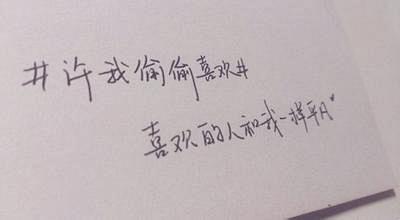 #许我偷偷喜欢#
喜欢的人和我一样平凡